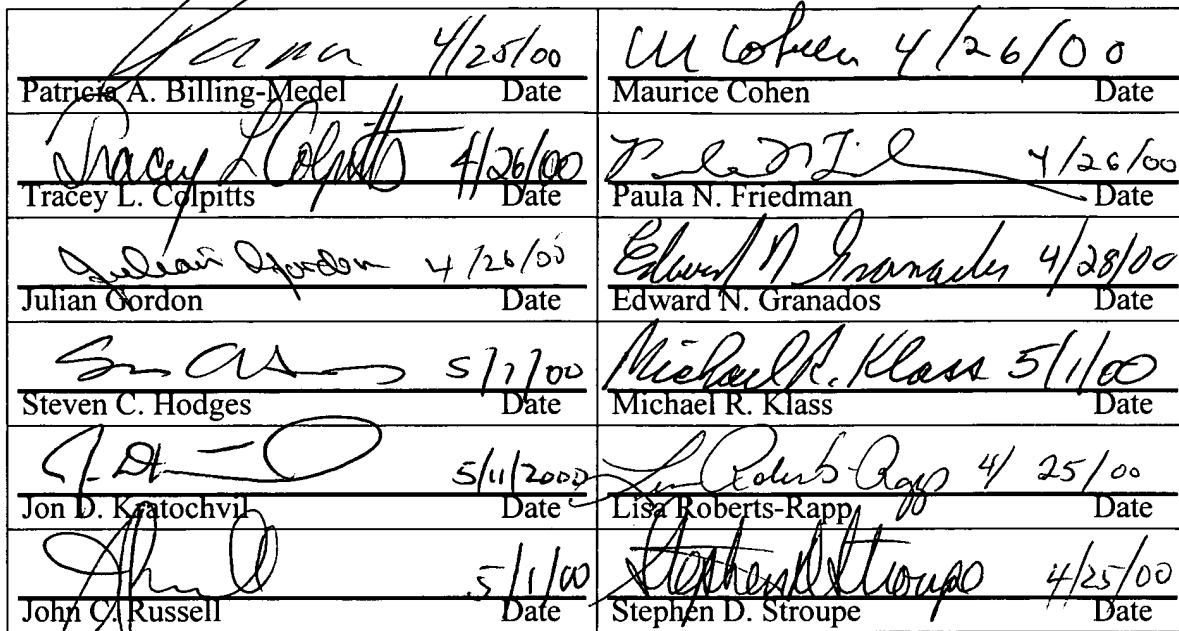 4/25/00
Patricia A. Billing-Medel Date
M Cohen 4/26/00
Maurice Cohen Date
Tracey L Colpitts 4/26/00
Tracey L. Colpitts Date
4/26/00
Paula N. Friedman Date
Julian Gordon 4/26/00
Julian Gordon Date
Edward N Granados 4/28/00
Edward N. Granados Date
00
Steven C. Hodges Date
Michael R. Klass 5/1/00
Michael R. Klass Date
5/11/2000
Jon D. Kratochvil Date
Roberts-Rapp 4/25/00
Lisa Roberts-Rapp Date
5/1/00
John C. Russell Date
Stephen D Stroupe 4/25/00
Stephen D. Stroupe Date